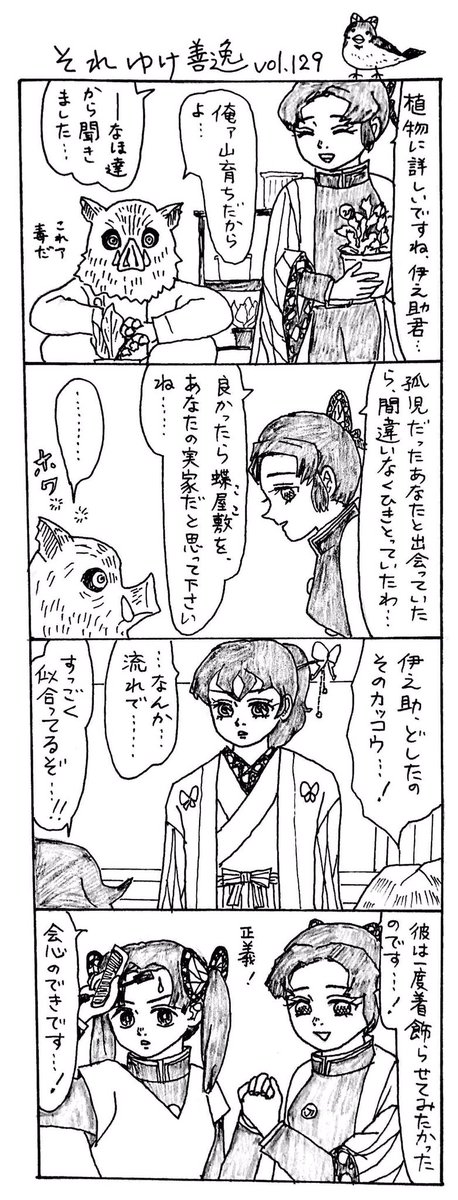 それゆけ善逸vol.129
植物に詳しいですね、伊之助君…
俺ァ山育ちだから
よ…
――なほ達
から聞き
ました…
これァ
毒だ
孤児だったあなたと出会っていた
ら、間違いなくひきとっていたわ…
良かったら蝶屋敷を、
ここ
あなたの実家だと思って下さい
ね…
………
ホワ
伊之助、どしたの
そのカッコウ…！
…なんか…
流れで……
すっごく
似合ってるぞ…!!
彼は一度着飾らせてみたかった
のです…！
正義！
会心のできです…！